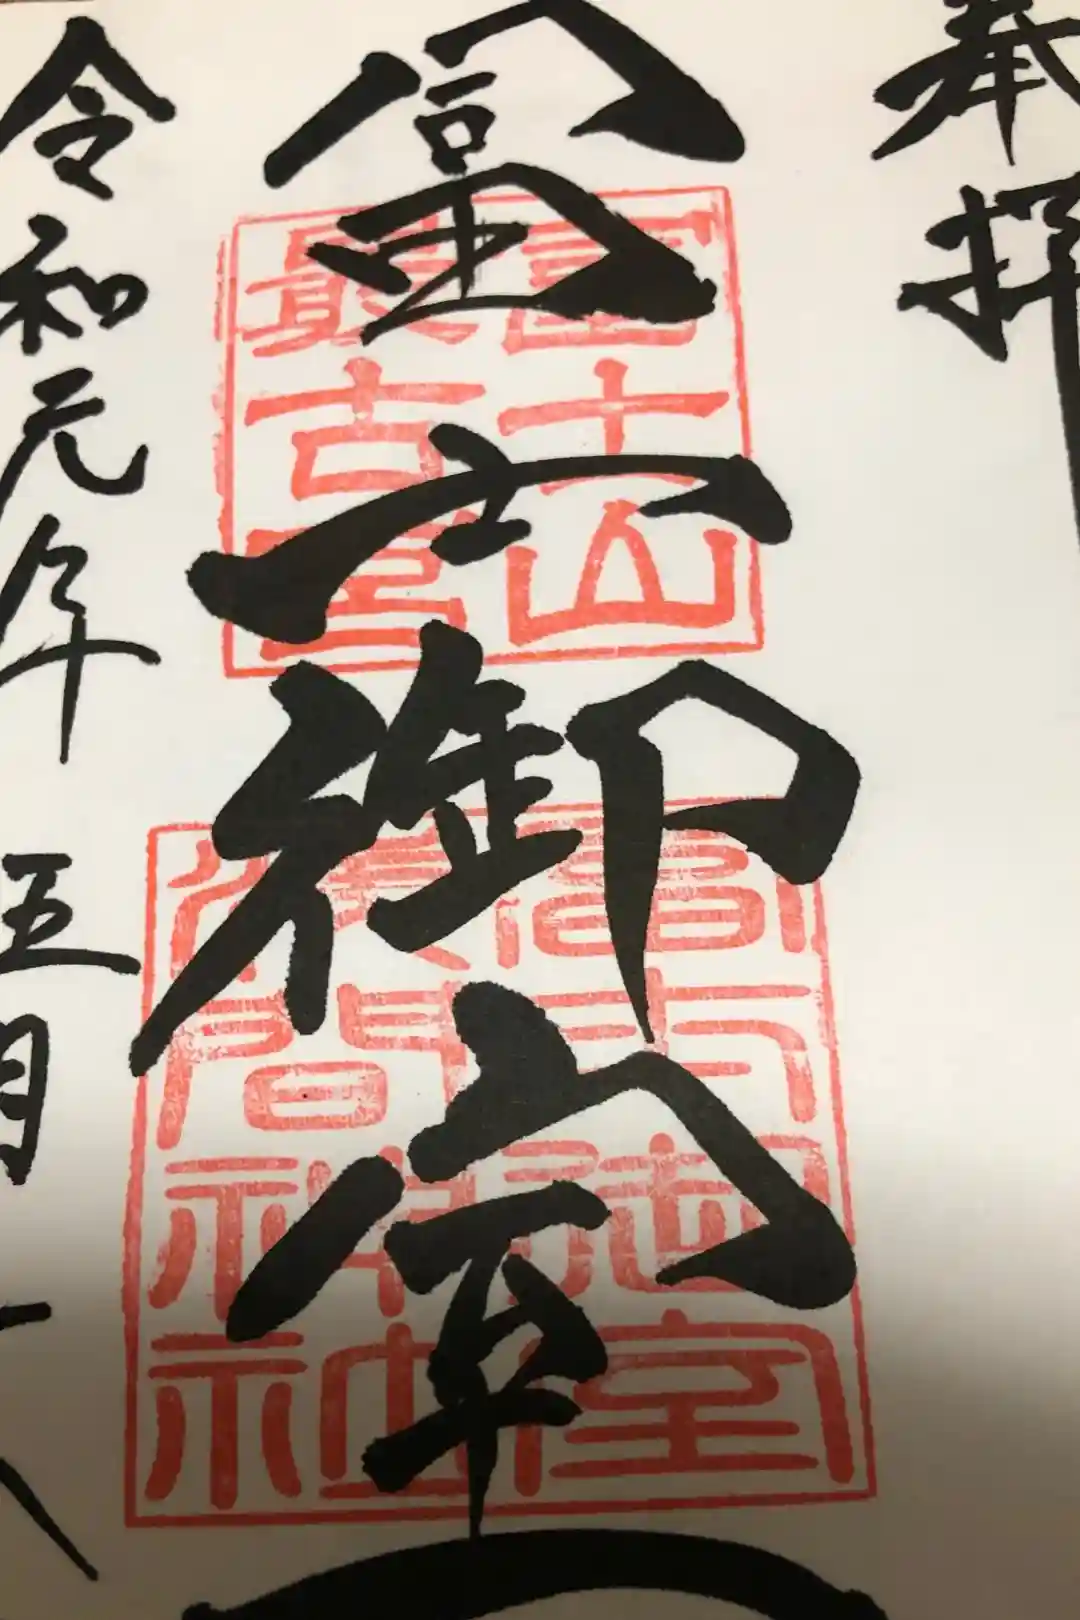 奉拝
冨士御室
令和元年五月
冨士山
最古宮
冨士御室
浅間神社